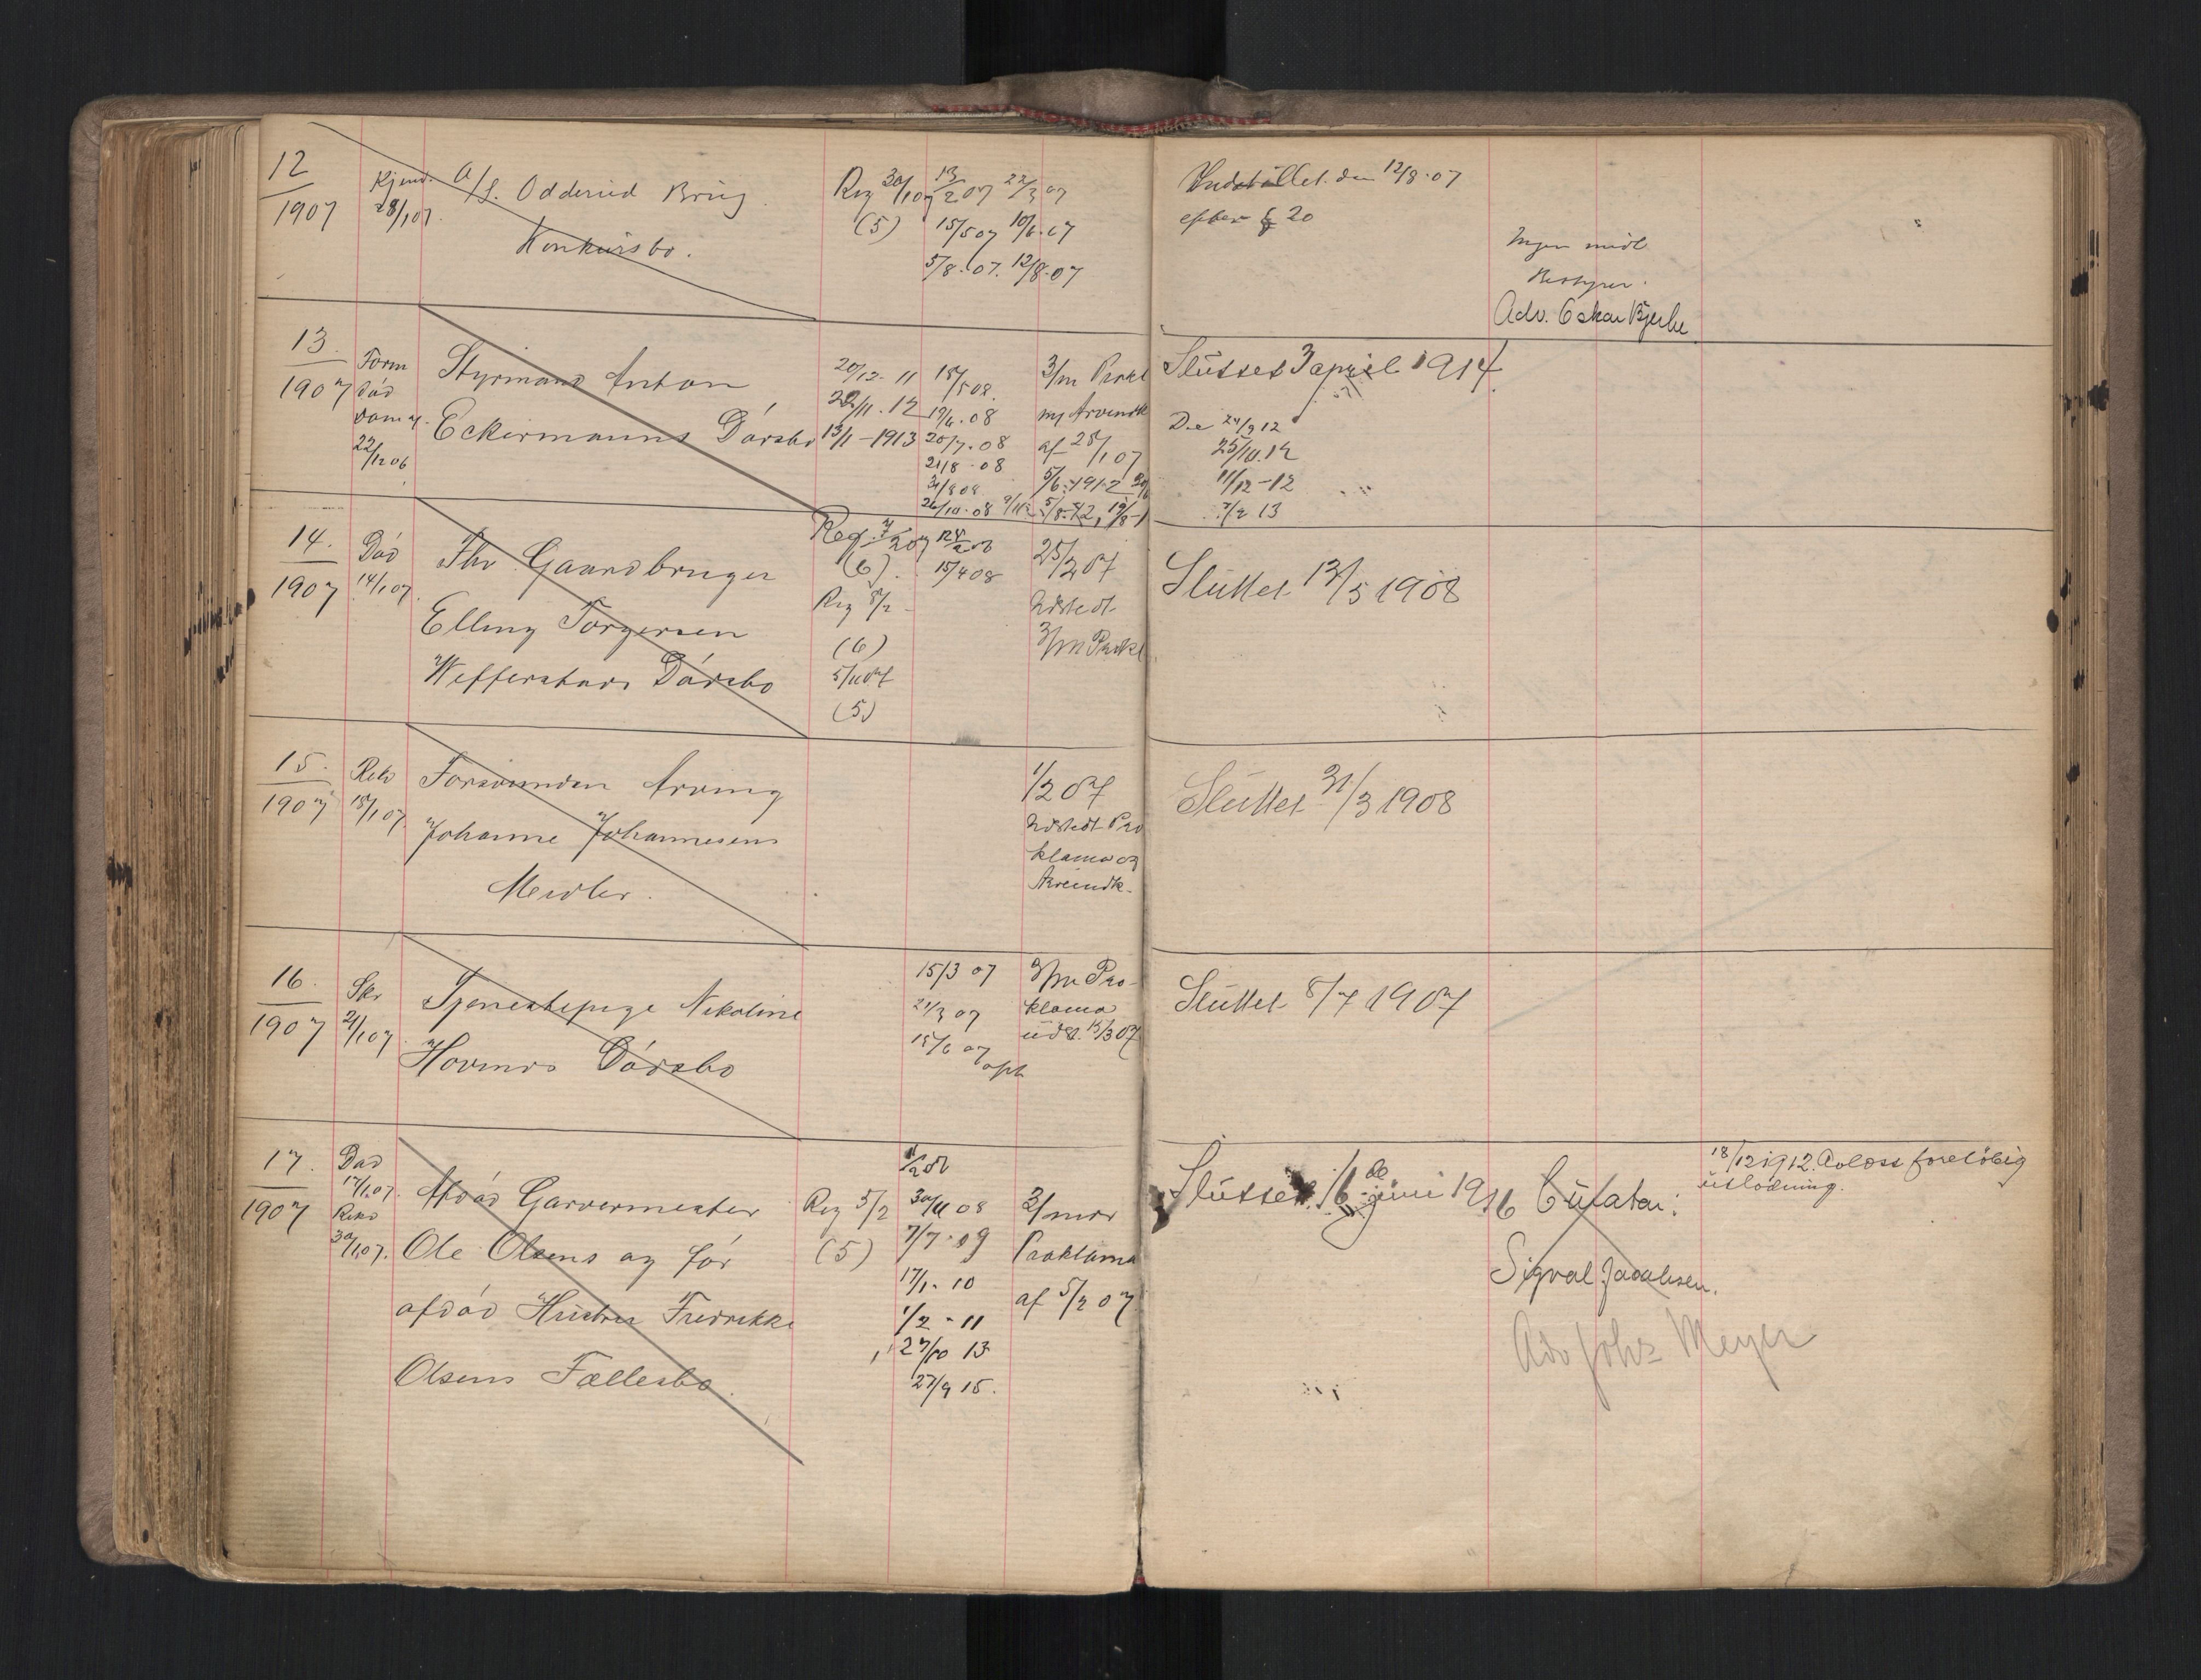 12
1907
Kjend.
28/1 07.
A/S. Odderöd Brug
Konkursbo.
Reg 30/1 07
(5)
13/2 07 22/3 07
15/5 07 10/6.07
5/8.07. 12/8.07
Indstillet den 12/8.07
efter § 20
Ingen midl
Bestyrer.
Adv. Oskar Bjerke
13.
1907
Form
död
dom af
22/12 06
Styrmand Anton
Eckermanns Dödsbo
20/12. 11
22/11. 12
13/1-1913
18/5 08.
19/6.08
20/7.08
21/8.08
26/10.08
3/m Prokl
og Arveindk
af 28/1 07
5/6.1912
Sluttet 3 april 1914
De 24/9 12
25/10.12
11/12-12
7/2 13
14.
1907
Död
14/1 07
Fhv Gaardbruger
Elling Torgersen
Wefferstads Dödsbo
Reg. 7/2 07
(6).
Reg 8/2
(6)
5/11 07
(5)
15/4 08
25/2 07
Udstedt
3/m Prokl
Sluttet 13/5 1908
15.
1907
Rekv
18/1 07.
Forsvunden Arving
Johanne Johannesens
Midler.
1/2 07
Udstedt Pro
klama og
Arveindk.
Sluttet 31/3 1908
16.
1907
Skr
21/1 07
Tjenestepige Nikoline
Hovinds Dödsbo
15/3 07
21/3 07
15/6 07
opt
3/m Pro-
klama
udst. 15/3 07
Sluttet 8/7 1907
17.
1907
Död
17/1 07.
Rekv
30/1 07.
Afdöd Garvermester
Ole Olsens og för
afdöd Hustru Fredrikke
Olsens Fællesbo.
Reg 5/2
(5)
30/11 08
7/7.09
17/1.10
1/2-11
27/10 13
27/9 15.
3/mdr
Proklama
af 5/2 07
Sluttet. 16de juni 1916
Curator:
Sigval Jacobsen.
Adv Johs Meyer
18/12 1912. Avlæst foreløbig
utlodning.